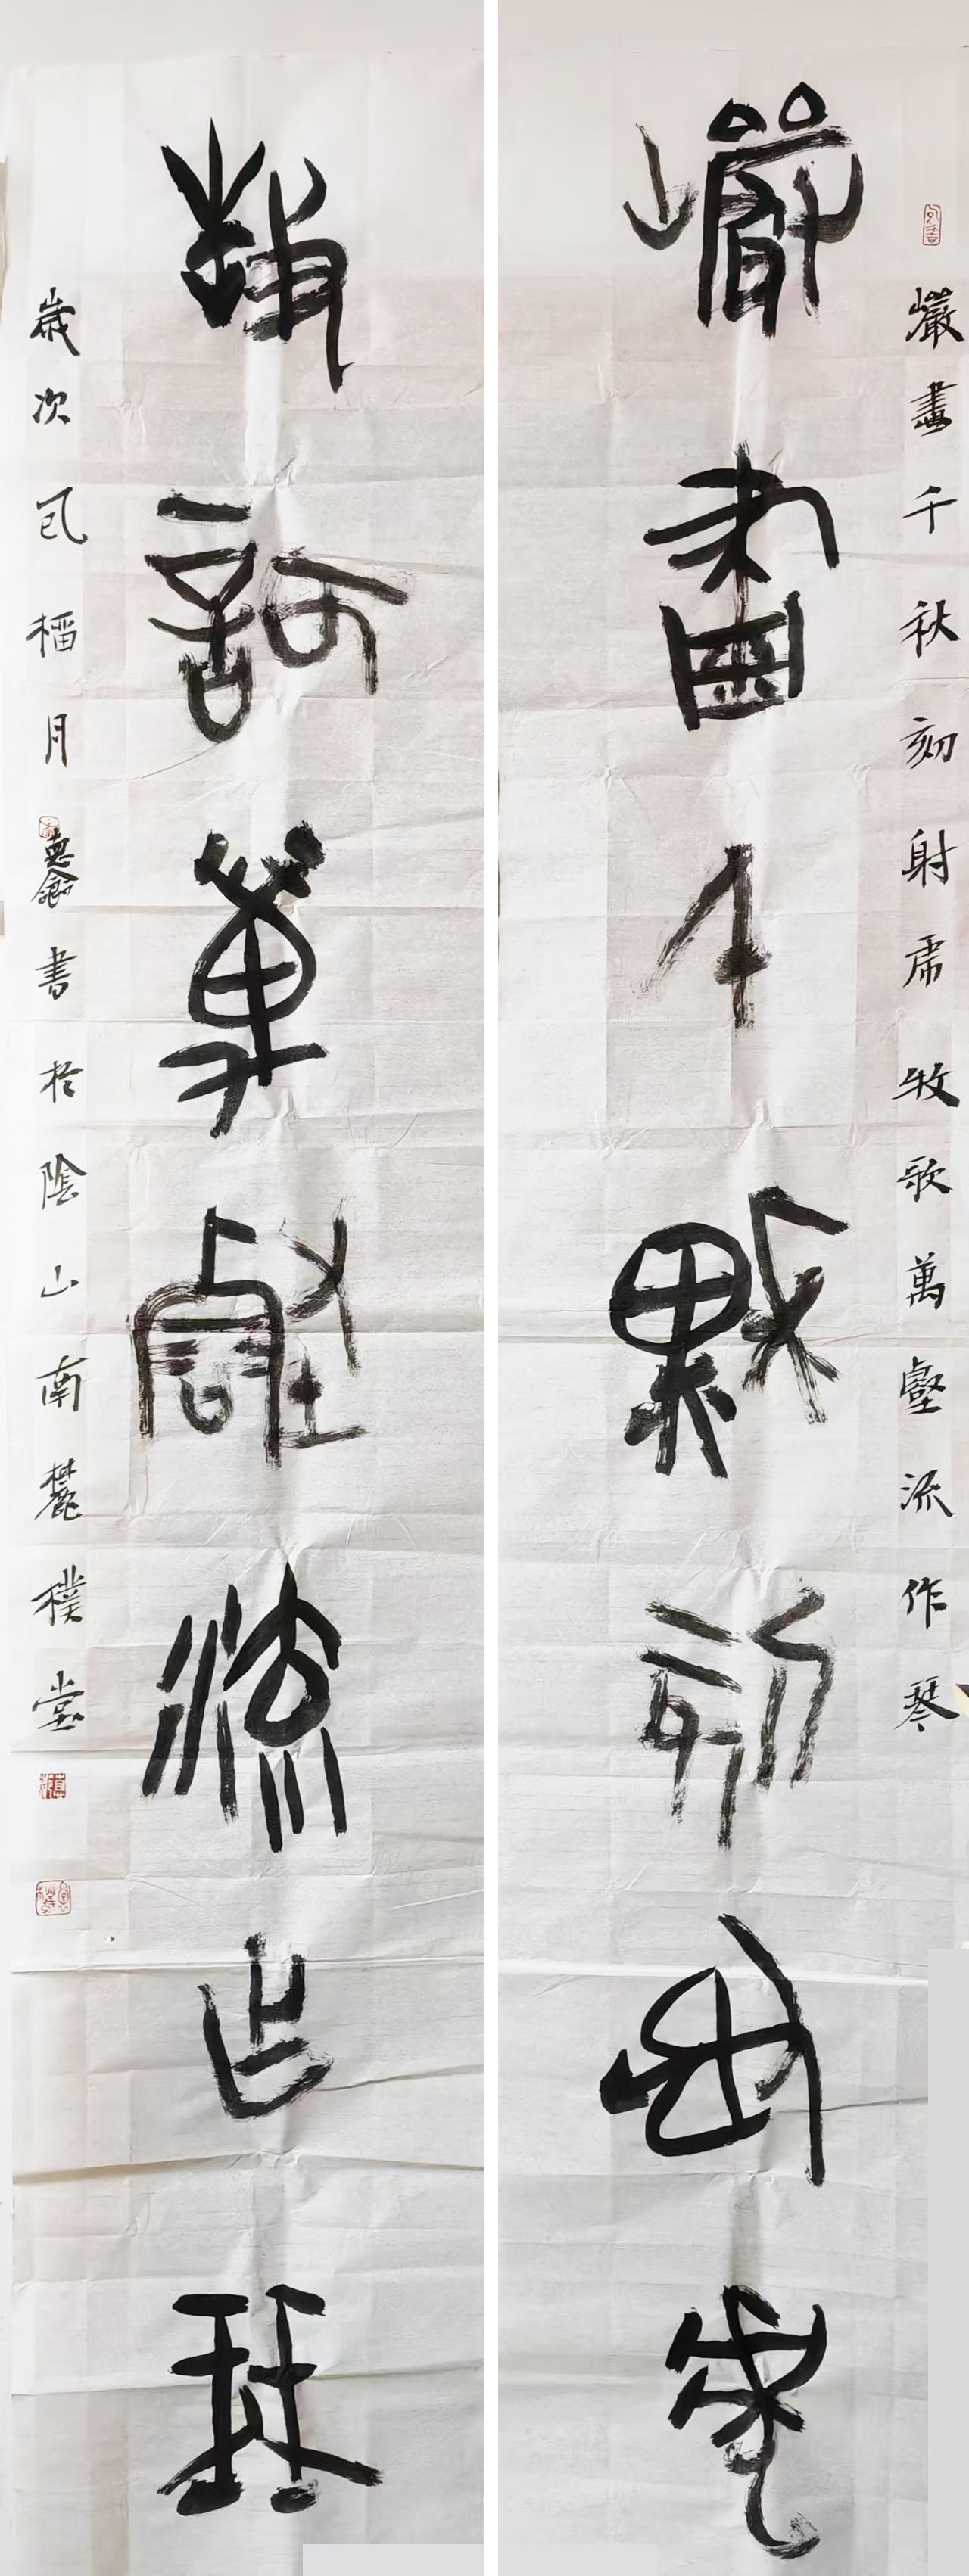 巖畫千秋刻射虎牧歌萬壑流作琴
巖畫千秋刻射虎
牧歌萬壑流作琴
歲次乙巳榴月書於陰山南麓樸堂